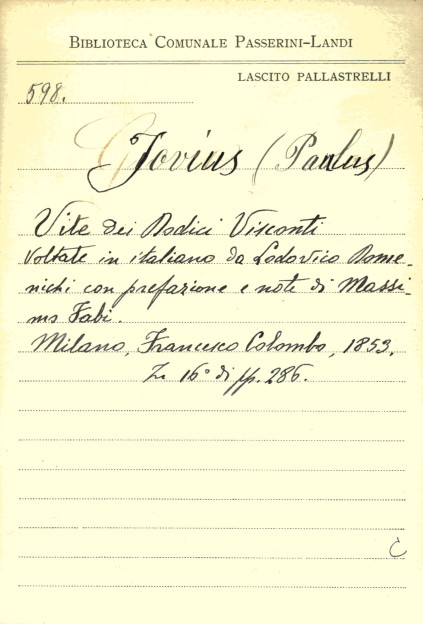 BIBLIOTECA COMUNALE PASSERINI-LANDI
LASCITO PALLASTRELLI
598.
Jovius (Paulus)
Vite dei Dodici Visconti
voltate in italiano da Lodovico Dome-
nichi con prefazione e note di Massi-
mo Fabi.
Milano, Francesco Colombo, 1853.
In 16° di pp. 286.
C